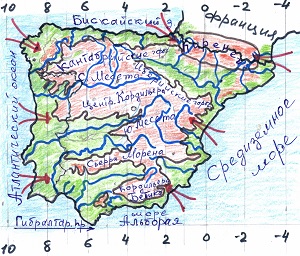 10 8 6 4 2 0 -2 -4
Бискайский з
Франция
Кантабрийские горы
С. Месета
Центр. Кордильера
Ю. Месета
Сьерра Морена
Кордильера
Бетика
Атлантический океан
Средиземное
море
Гибралтар. пр.
море
Альборан
10 8 6 4 2 0 -2 -4